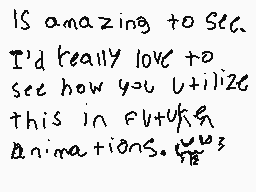 Is amazing to see.
I'd really love to
see how you utilize
this in future
animations.